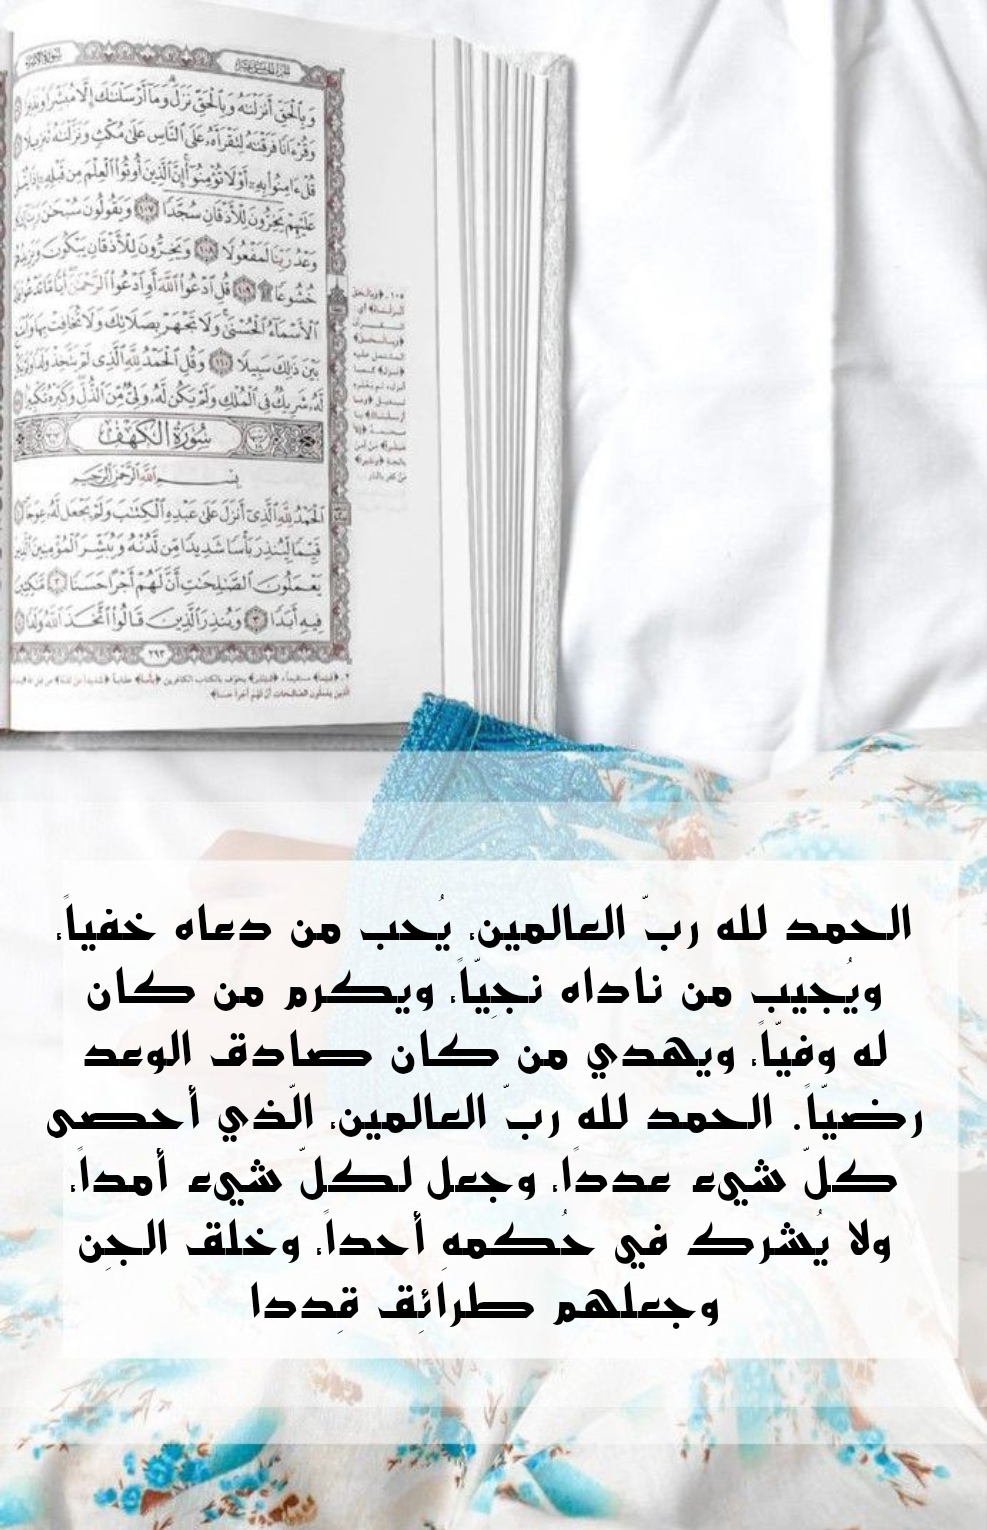 وَبِٱلْحَقِّ أَنزَلْنَٰهُ وَبِٱلْحَقِّ نَزَلَ وَمَآ أَرْسَلْنَٰكَ إِلَّا مُبَشِّرًا وَنَذِيرًا
وَقُرْءَانًا فَرَقْنَٰهُ لِتَقْرَأَهُۥ عَلَى ٱلنَّاسِ عَلَىٰ مُكْثٍ وَنَزَّلْنَٰهُ تَنزِيلًا
قُلْ ءَامِنُوا۟ بِهِۦٓ أَوْ لَا تُؤْمِنُوٓا۟ إِنَّ ٱلَّذِينَ أُوتُوا۟ ٱلْعِلْمَ مِن قَبْلِهِۦٓ إِذَا
عَلَيْهِمْ يَخِرُّونَ لِلْأَذْقَانِ سُجَّدًا ١٠٧ وَيَقُولُونَ سُبْحَٰنَ رَبِّنَآ
وَعْدُ رَبِّنَا لَمَفْعُولًا ١٠٨ وَيَخِرُّونَ لِلْأَذْقَانِ يَبْكُونَ
خُشُوعًا ١٠٩ قُلِ ٱدْعُوا۟ ٱللَّهَ أَوِ ٱدْعُوا۟ ٱلرَّحْمَٰنَ أَيًّا مَّا تَدْعُوا۟
ٱلْأَسْمَآءُ ٱلْحُسْنَىٰ وَلَا تَجْهَرْ بِصَلَاتِكَ وَلَا تُخَافِتْ بِهَا
بَيْنَ ذَٰلِكَ سَبِيلًا ١١٠ وَقُلِ ٱلْحَمْدُ لِلَّهِ ٱلَّذِى لَمْ يَتَّخِذْ وَلَدًا
لَّهُۥ شَرِيكٌ فِى ٱلْمُلْكِ وَلَمْ يَكُن لَّهُۥ وَلِىٌّ مِّنَ ٱلذُّلِّ وَكَبِّرْهُ تَكْبِيرًا
سُورَةُ الْكَهْفِ
بِسْمِ ٱللَّهِ ٱلرَّحْمَٰنِ ٱلرَّحِيمِ
ٱلْحَمْدُ لِلَّهِ ٱلَّذِىٓ أَنزَلَ عَلَىٰ عَبْدِهِ ٱلْكِتَٰبَ وَلَمْ يَجْعَل لَّهُۥ عِوَجَا
قَيِّمًا لِّيُنذِرَ بَأْسًا شَدِيدًا مِّن لَّدُنْهُ وَيُبَشِّرَ ٱلْمُؤْمِنِينَ ٱلَّذِينَ
يَعْمَلُونَ ٱلصَّٰلِحَٰتِ أَنَّ لَهُمْ أَجْرًا حَسَنًا ٢ مَّٰكِثِينَ
فِيهِ أَبَدًا ٣ وَيُنذِرَ ٱلَّذِينَ قَالُوا۟ ٱتَّخَذَ ٱللَّهُ وَلَدًا
٢٩٣
الحمد لله ربّ العالمين، يُحب من دعاه خفياً،
ويُجيب من ناداه نجِيّاً، ويكرم من كان
له وفيّاً، ويهدي من كان صادق الوعد
رضيّاً. الحمد لله ربّ العالمين، الّذي أحصى
كلّ شيء عدداً، وجعل لكلّ شيء أمداً،
ولا يُشرك في حُكمهِ أحداً، وخلق الجِن
وجعلهم طرائِق قِددا